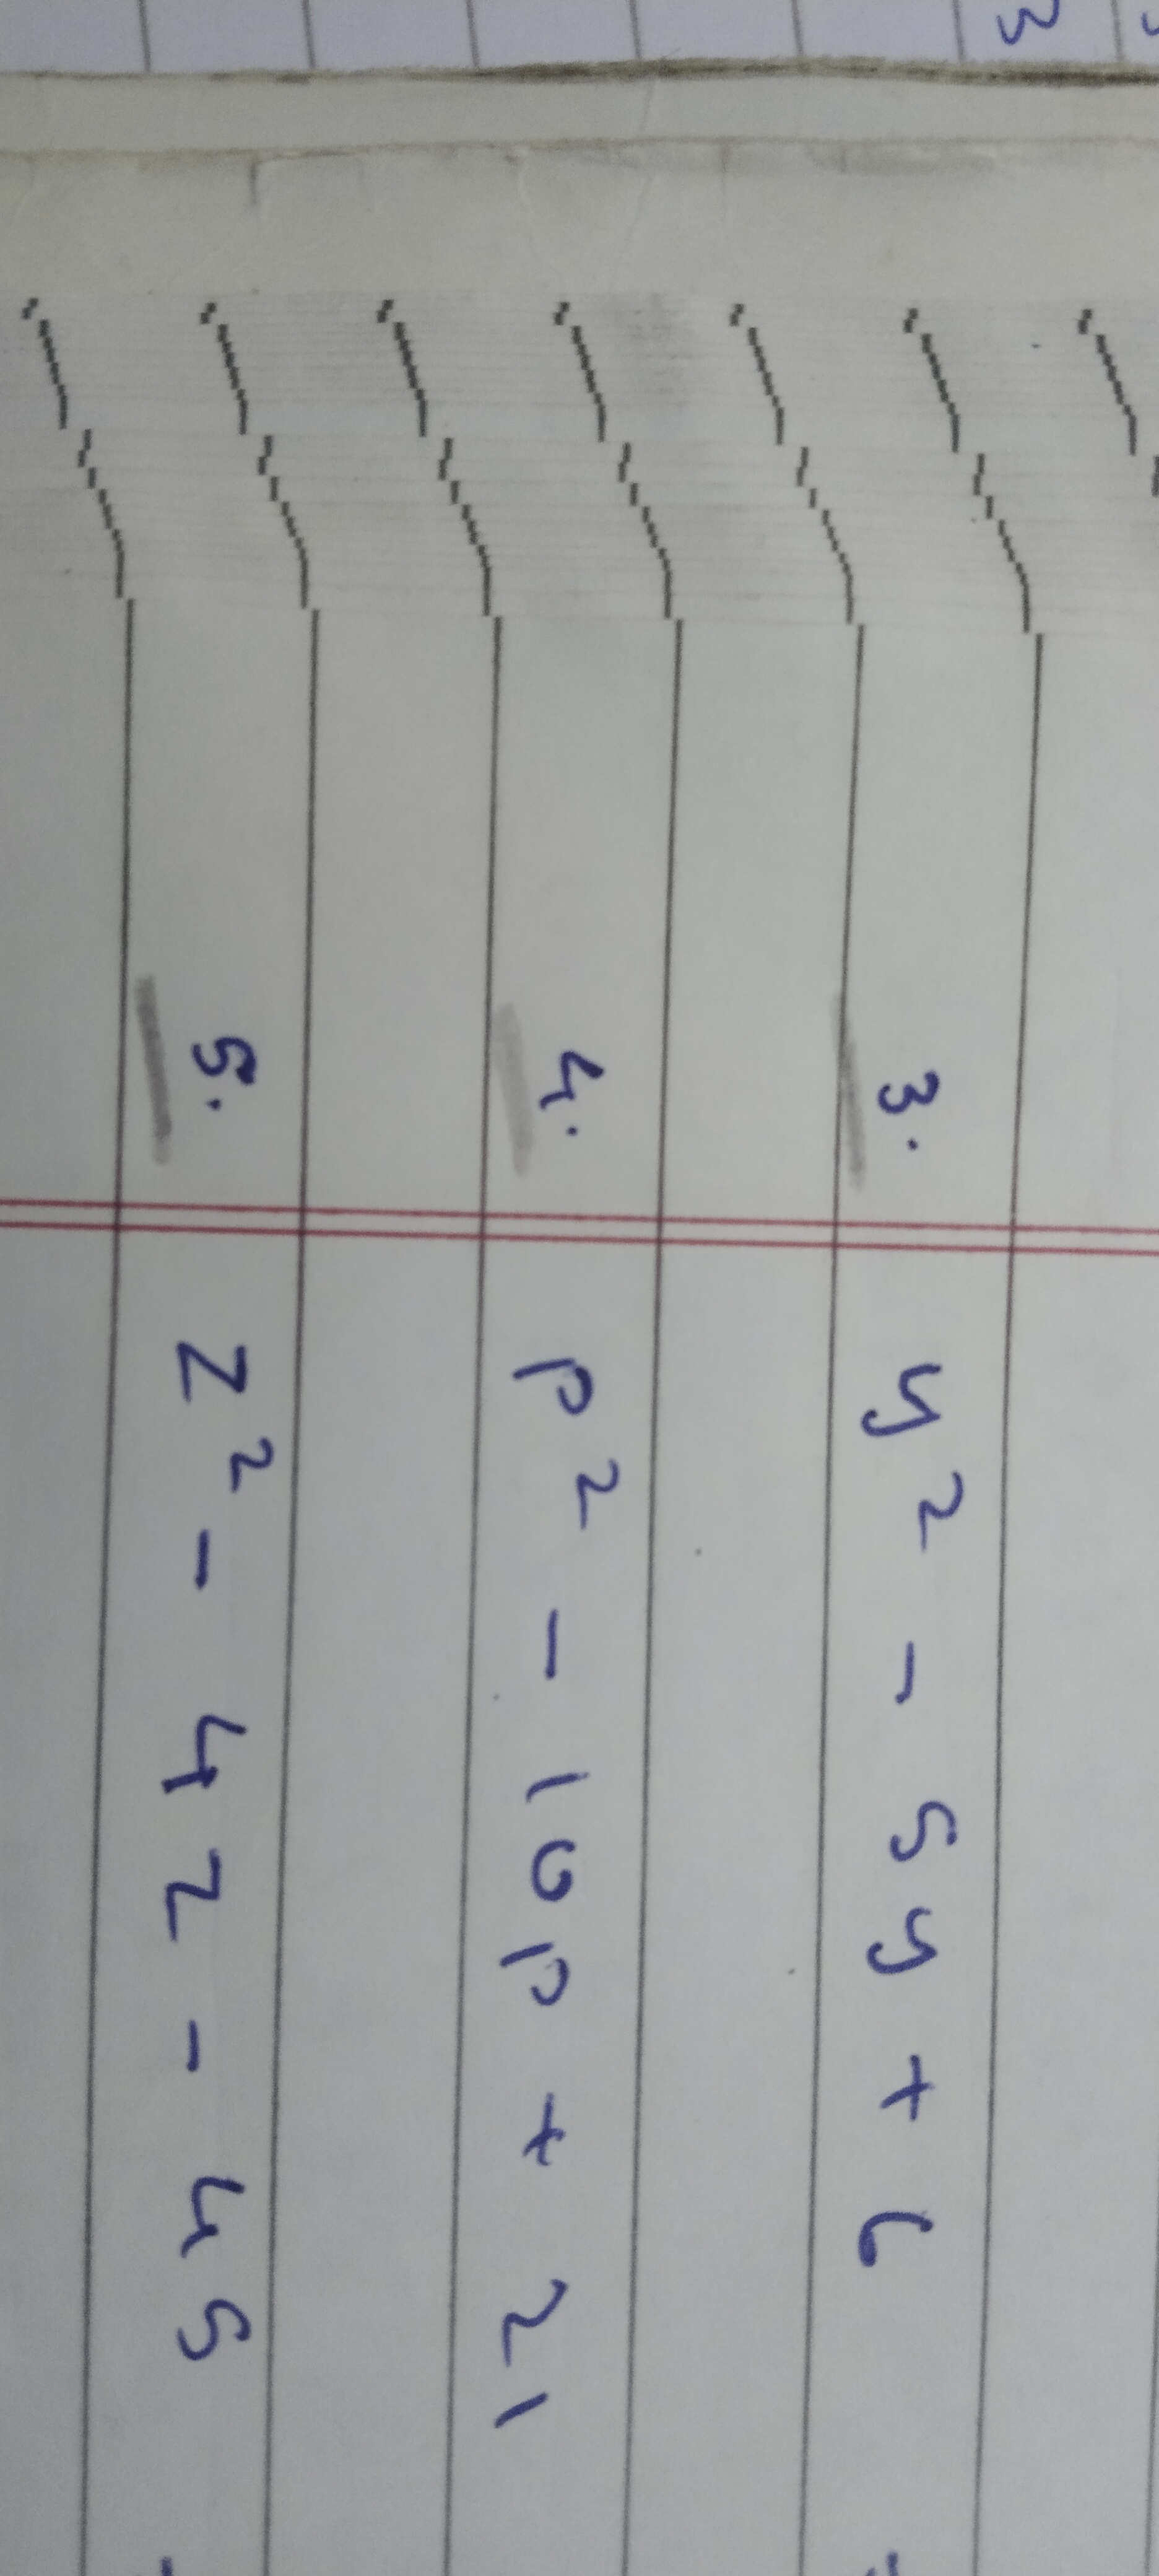 3. y² - 5y + 6
4. p² - 10p + 21
5. z² - 4z - 45